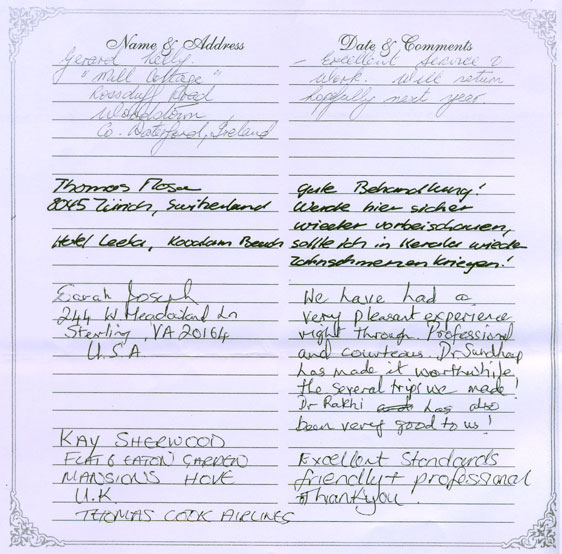 Name & Address
Date & Comments
Gerard Kelly.
"Mill Cottage"
Rossduff Road
Woodstown
Co. Waterford, Ireland
- Excellent Service &
work. Will return
hopefully next year
Thomas Moser
8045 Zürich, Switzerland
Hotel Leela, Kovalam Beach
gute Behandlung!
Werde hier sicher
wieder vorbeischauen,
sollte ich in Kerala wieder
Zahnschmerzen kriegen!
Sarah Joseph
244 W Meadowland Ln
Sterling, VA 20164
U.S.A
We have had a
very pleasant experience
right through. Professional
and courteous. Dr
has made it worthwhile
the several trips we made!
Dr Rakhi has also
been very good to us!
KAY SHERWOOD
FLAT 6 EATON GARDEN
MANSIONS HOVE
U.K.
THOMAS COOK AIRLINES
Excellent Standards
friendly + professional
Thankyou